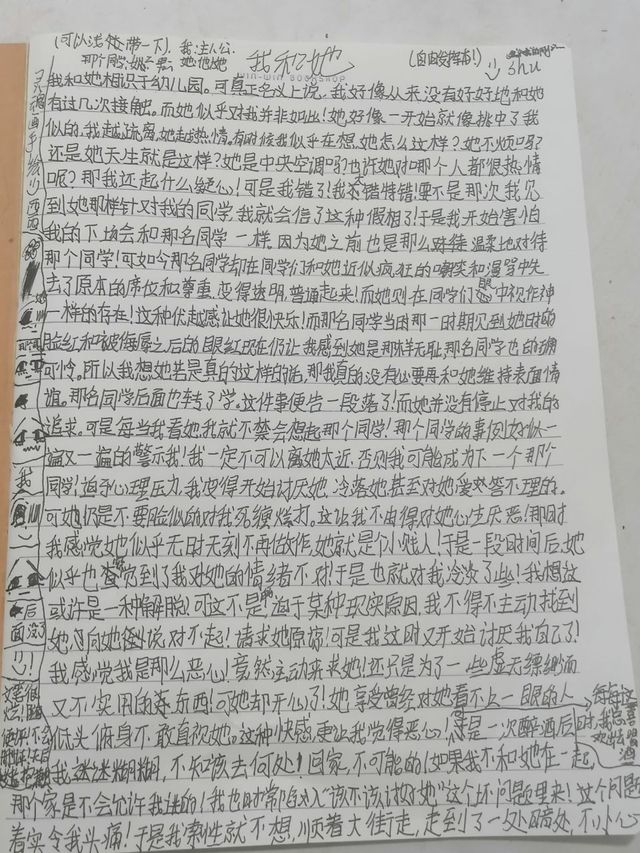 (可以浅处带一下). 我:主人公.
那个同学:她 男: 她:他她
我和她
WIN-WIN BOOKSHOP
(自由发挥布!)
shu
我和她相识于幼儿园。可真正名义上说, 我好像从来没有好好地和她
有过几次接触。而她似乎对我并非如此!她好像一开始就像挑中了我
似的。我越疏离,她越热情。有时候我似乎在想,她怎么这样?她不烦吗?
还是她天生就是这样?她是中央空调吗?也许她对哪个人都很热情
呢?那我还起什么疑心!可是我错了!我大错特错!要不是那次我见
到她那样针对我的同学,我就会信了这种假相了!于是我开始害怕
我的下场会和那名同学一样.因为她之前也是那么温柔地对待
那个同学!可如今那名同学却在同学们和她近似疯狂的嘲笑和漫骂中失
去了原本的席位和尊重,变得透明,普通起来!而她则在同学们眼中视作神
一样的存在!这种优越感让她很快乐!而那名同学当因那一时期见到她时的
脸红和被侮辱之后的眼红现在仍让我感到她是那样无耻,那名同学也的确
可怜。所以我想她若是真的这样的话,那我真的没有必要再和她维持表面情
谊。那名同学后面也转了学。这件事便告一段落了!而她并没有停止对我的
追求。可是每当我看她,我就不禁会想起那个同学!那个同学的事例好似一
遍又一遍的警示我!我一定不可以离她太近,否则我可能成为下一个那个
同学!迫于心理压力,我变得开始讨厌她,冷落她,甚至对她爱答不理的。
可她仍是不要脸似的对我死缠烂打。这让我不由得对她心生厌恶!那时
我感觉她似乎无时无刻不再做作,她就是个小贱人!于是一段时间后,她
似乎也察觉到了我对她的情绪不对!于是也就对我冷淡了些!我想这
或许是一种解脱?可这不是!迫于某种现实原因,我不得不主动找到
她,向她说对不起!请求她原谅!可是我这时又开始讨厌我自己了!
我感觉我是那么恶心!竟然主动来求她!还只是为了一些虚无缥缈而
又不实用的东西!可她却开心了!她享受曾经对她看不上一眼的人
低头俯身不敢直视她。这种快感,更让我觉得恶心!是一次醉酒后
我迷迷糊糊,不知该去何处!回家,不可能的!如果我不和她在一起,
那个家是不会允许我进的!我也时常陷入“该不该讨好她”这个坏问题里来!这个问题
着实令我头痛!于是我索性就不想,顺着大街走,走到了一处暗处,不小心
我
后面没